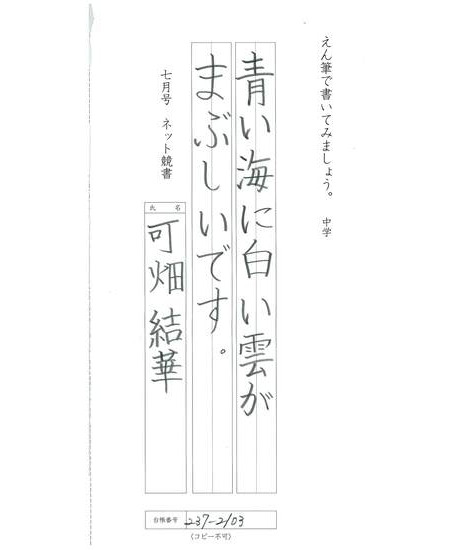 えん筆で書いてみましょう。 中学
青い海に白い雲が
まぶしいです。
七月号 ネット競書
氏名
可畑結華
台帳番号 237-2103
(コピー不可)